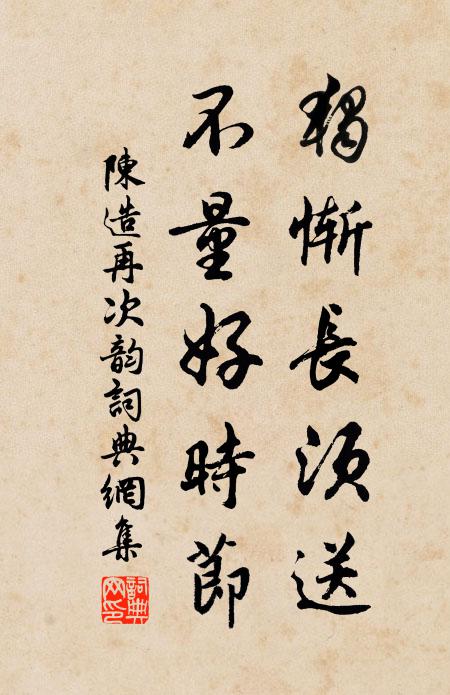 獨慚長須送
不量好時節
陳造再次韵詞典網集
詞典网印